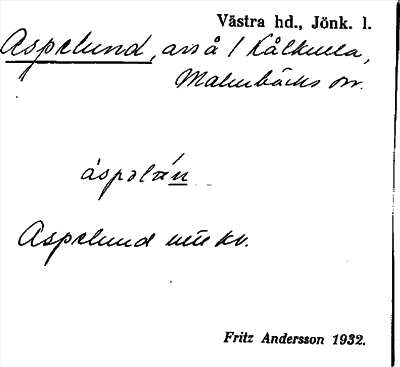 Västra hd., Jönk. l.
Aspelund, avs å 1 Kålkulla,
Malmbäcks sn.
áspəlá́n
Aspelund
Fritz Andersson 1932.